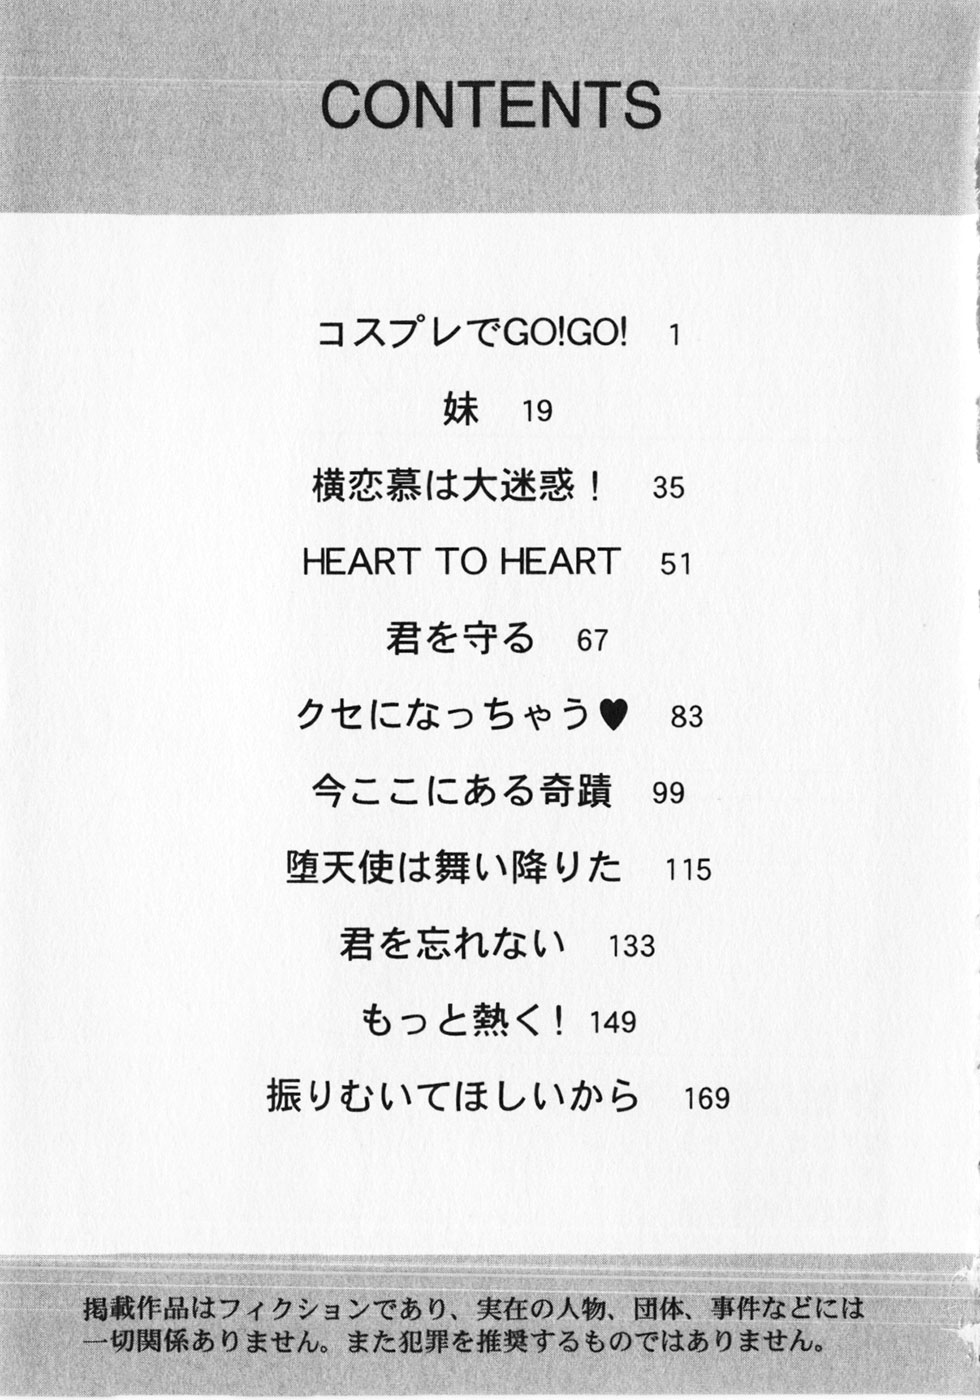 CONTENTS
コスプレでGO!GO! 1
妹 19
横恋慕は大迷惑！ 35
HEART TO HEART 51
君を守る 67
クセになっちゃう♥ 83
今ここにある奇蹟 99
堕天使は舞い降りた 115
君を忘れない 133
もっと熱く! 149
振りむいてほしいから 169
掲載作品はフィクションであり、実在の人物、団体、事件などには
一切関係ありません。また犯罪を推奨するものではありません。